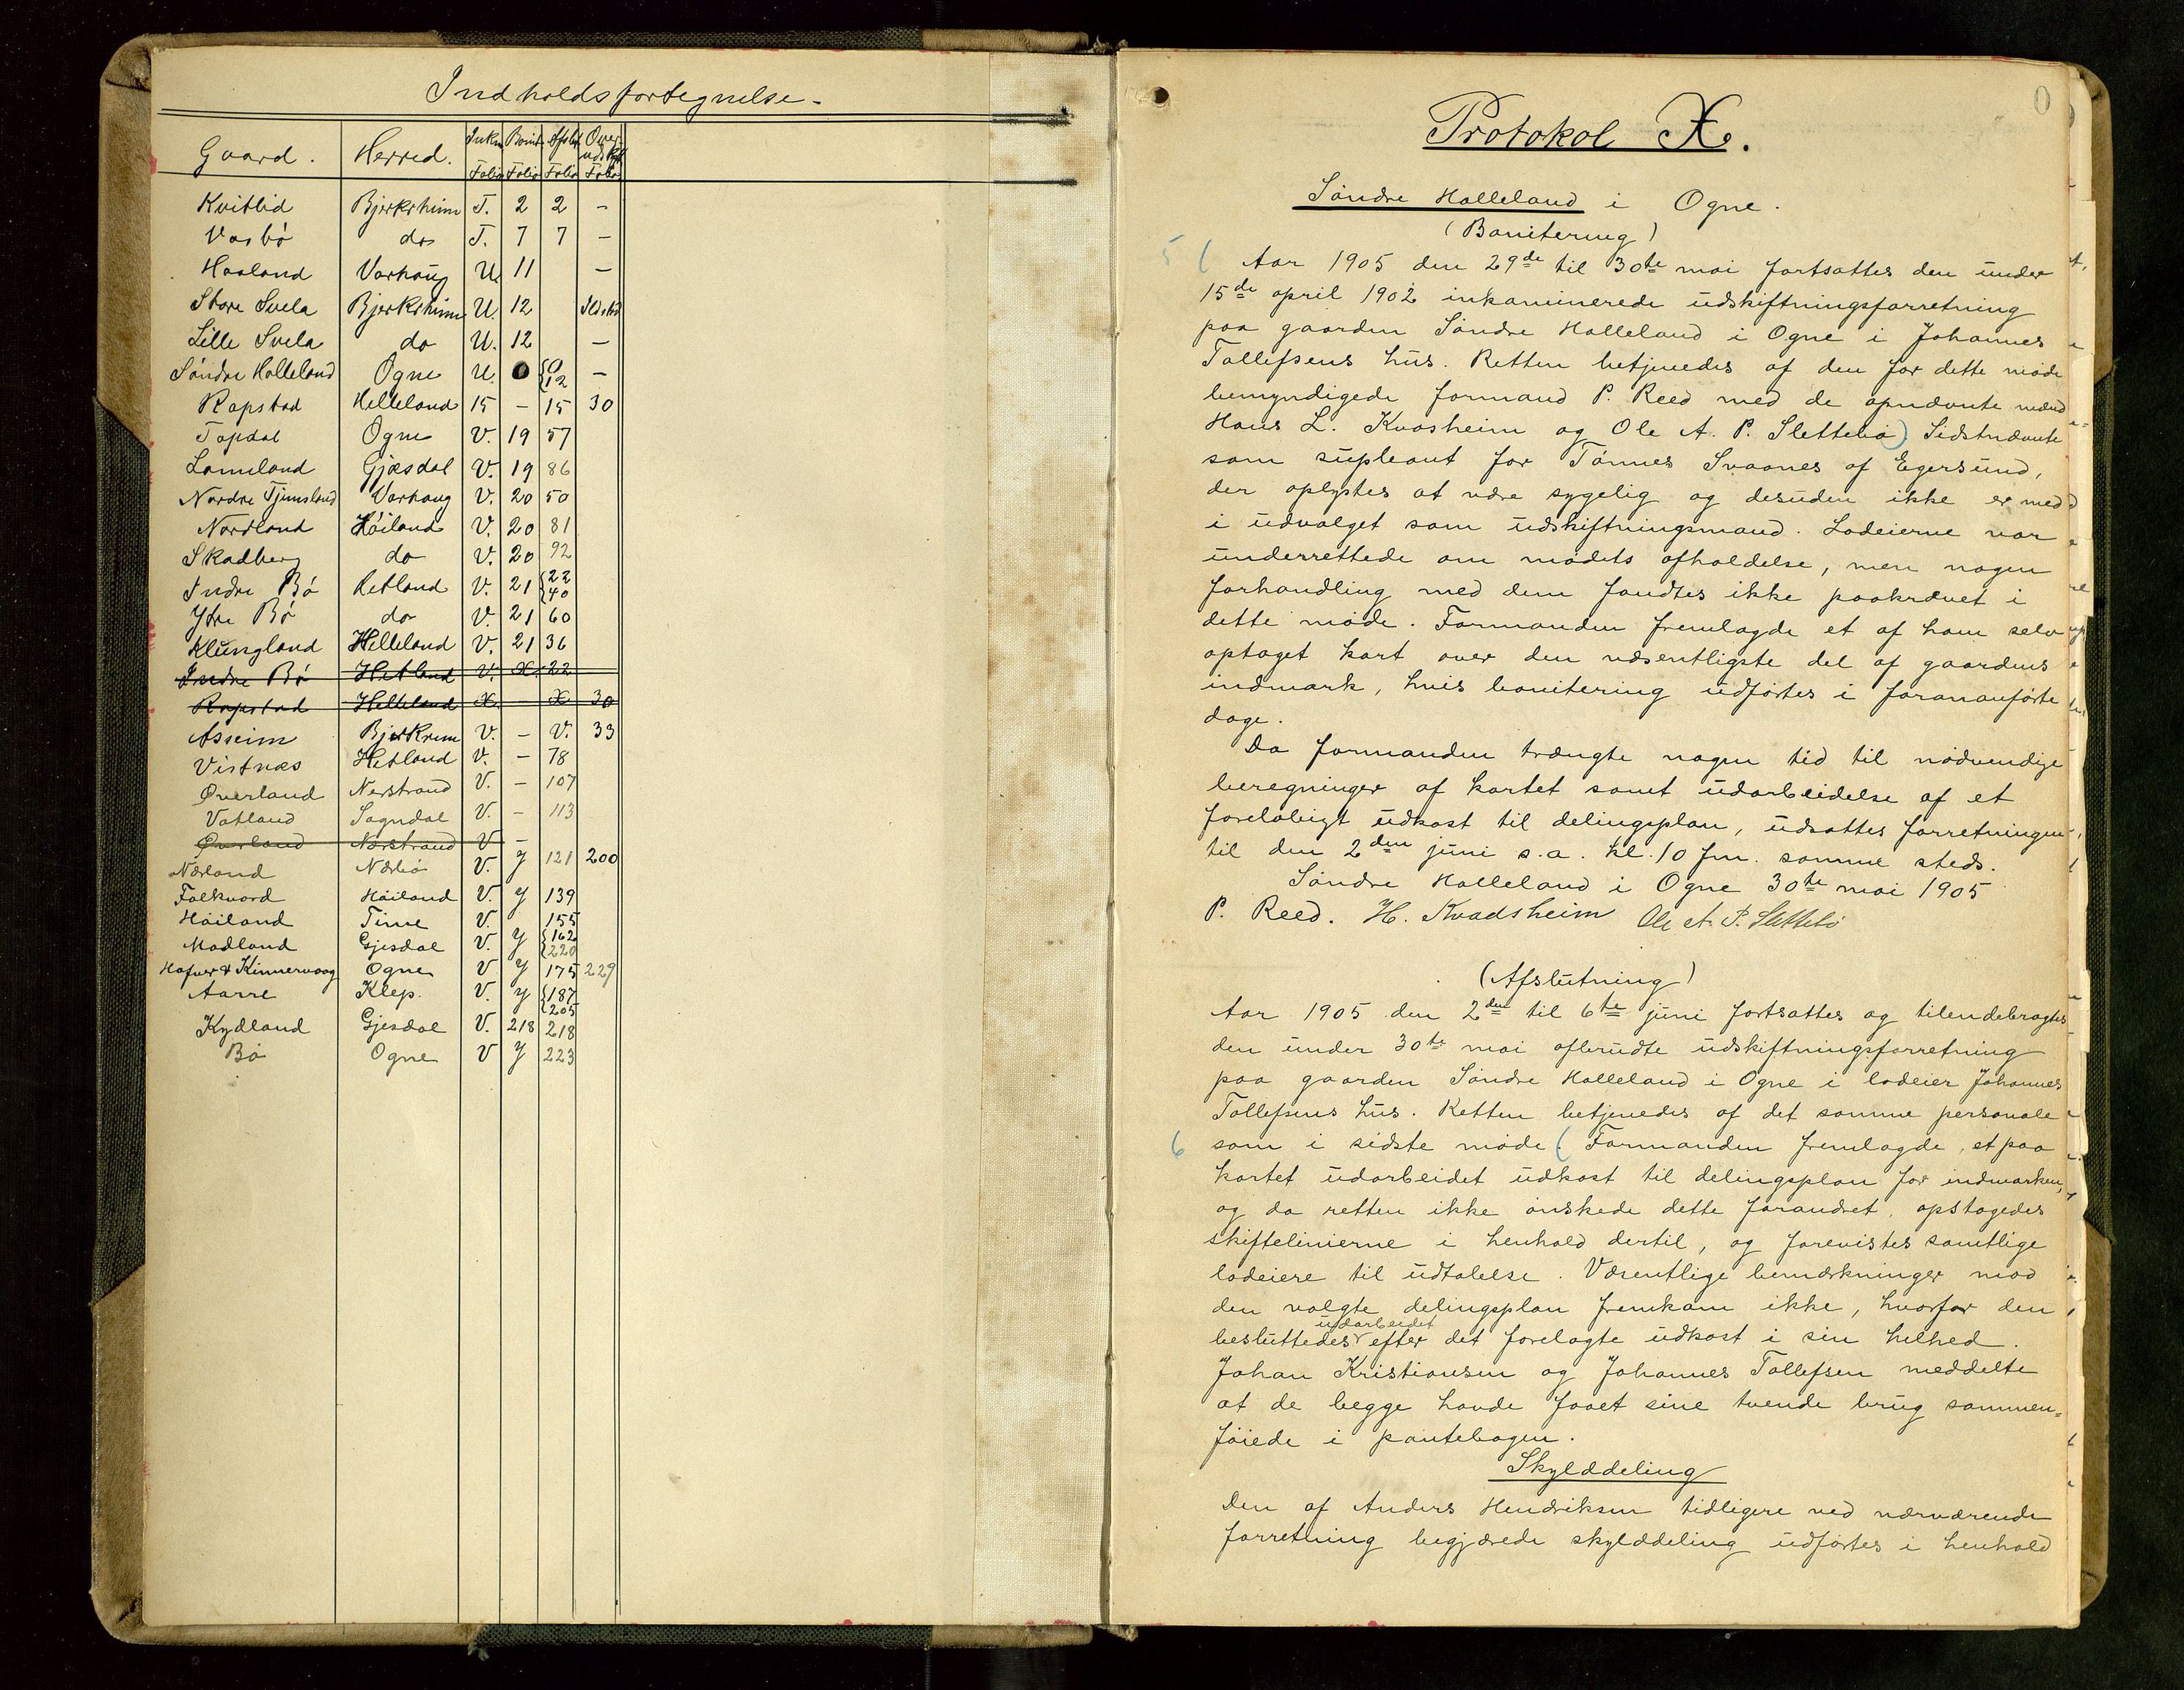 Indholdsfortegnelse.
Gaard. Herred. Inkm Folio Bonit Folio Afslut Folio Over udskft Folio
Kvitlid Bjerkrheim T. 2 2 –
Vasbø do T. 7 7 –
Haaland Varhaug U. 11 –
Store Svela Bjerkrheim U. 12
Lille Svela do U. 12 –
Søndre Halleland Ogne U. 0 {0 12 –
Rapstad Helleland 15 – 15 30
Tapdal Ogne V. 19 57
Lomeland Gjæsdal V. 19 86
Nordre Tjemsland Varhaug V. 20 50
Nordland Høiland V. 20 81
Skadberg do V. 20 92
Indre Bø Hetland V. 21 {22 40
Ytre Bø do V. 21 60
Klungland Helleland V. 21 36
Indre Bø Hetland V. X. 22
Rapstad Helleland X. – X 30
Asseim Bjerkrem V. – V. 33
Vistnæs Hetland V. – 78
Øverland Nerstrand V. – 107
Vatland Sogndal V. – 113
Øverland Nærstrand V –
Nærland Nærbø V. y 121 200
Folkvord Høiland V. y 139
Høiland Time V. 155
Madland Gjesdal V. y {162 220
Hafver & Kinnervaag Ogne V y 175 229
Aarre Klep. V. y {187 205
Kydland Gjesdal V. 218 218
Bø Ogne V y 223
0
Protokol X.
Søndre Halleland i Ogne.
(Bonitering)
5 ( Aar 1905 den 29de til 30te mai fortsattes den under
15de april 1902 inkaminerede udskiftningsforretning
paa gaarden Søndre Halleland i Ogne i Johannes
Tollefsens hus. Retten betjenedes af den for dette møde
bemyndigede formand P. Reed med de opnævnte mænd
Hans L. Kvasheim og Ole A. P. Slettebø) Sidstnævnte
som supleant for Tønnes Svaanes af Egersund,
der oplystes at være sygelig og desuden ikke er med
i udvalget som udskiftningsmand. Lodeierne var
underrettede om mødets afholdelse, men nogen
forhandling med dem fandtes ikke paakrævet i
dette møde. Formanden fremlagde et af ham selv
optaget kart over den væsentligste del af gaardens
indmark, hvis bonitering udførtes i forananførte
dage.
Da formanden trængte nogen tid til nødvendige
beregninger af kartet samt udarbeidelse af et
foreløbigt udkast til delingsplan, udsattes forretningen
til den 2den juni s.a. kl. 10 fm. samme steds.
Søndre Halleland i Ogne 30te mai 1905
P. Reed. H. Kvadsheim Ole A. P. Slettebø
(Afslutning)
Aar 1905 den 2den til 6te juni fortsattes og tilendebragtes
den under 30te mai afbrudte udskiftningsforretning
paa gaarden Søndre Halleland i Ogne i lodeier Johannes
Tollefsens hus. Retten betjenedes af det samme personale
6 som i sidste møde. ( Formanden fremlagde et paa
kartet udarbeidet udkast til delingsplan for indmarken,
og da retten ikke ønskede dette forandret, opstagedes
skiftelinierne i henhold dertil, og forevistes samtlige
lodeiere til udtalelse. Væsentlige bemærkninger mod
den valgte delingsplan fremkom ikke, hvorfor den
udarbeidet
besluttedes efter det forelagte udkast i sin helhed.
Johan Kristiansen og Johannes Tollefsen meddelte
at de begge havde faaet sine tvende brug sammen=
føiede i pantebogen.
Skylddeling
Den af Anders Hendriksen tidligere ved nærværende
forretning begjærede skylddeling udførtes i henhold